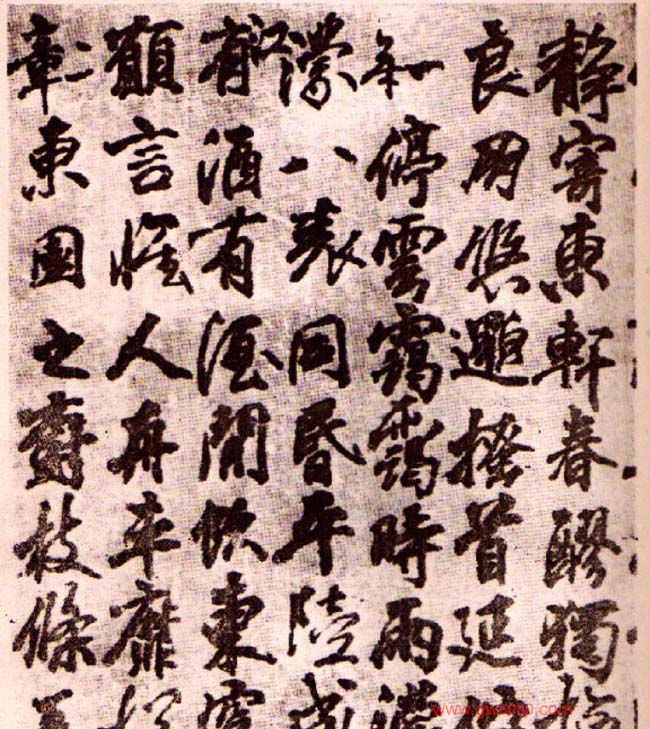 靜寄東軒春醪獨撫
良朋悠邈搔首延佇
停雲靄靄時雨濛
濛八表同昏平陸成
江有酒有酒閒飲東窗
願言懷人舟車靡從
東園之樹枝條
www.gw8000.com